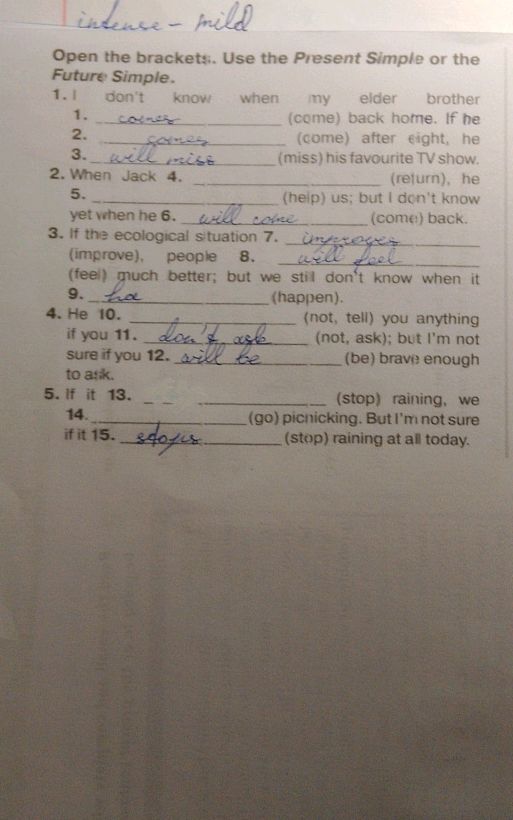 intense - mild
Open the brackets. Use the Present Simple or the
Future Simple.
1. I don't know when my elder brother
1. comes (come) back home. If he
2. comes (come) after eight, he
3. will miss (miss) his favourite TV show.
2. When Jack 4. (return), he
5. (help) us; but I don't know
yet when he 6. will come (come) back.
3. If the ecological situation 7. improves
(improve), people 8. will feel
(feel) much better; but we still don't know when it
9. ha (happen).
4. He 10. (not, tell) you anything
if you 11. don't ask (not, ask); but I'm not
sure if you 12. will be (be) brave enough
to ask.
5. If it 13. (stop) raining, we
14. (go) picnicking. But I'm not sure
if it 15. stops (stop) raining at all today.